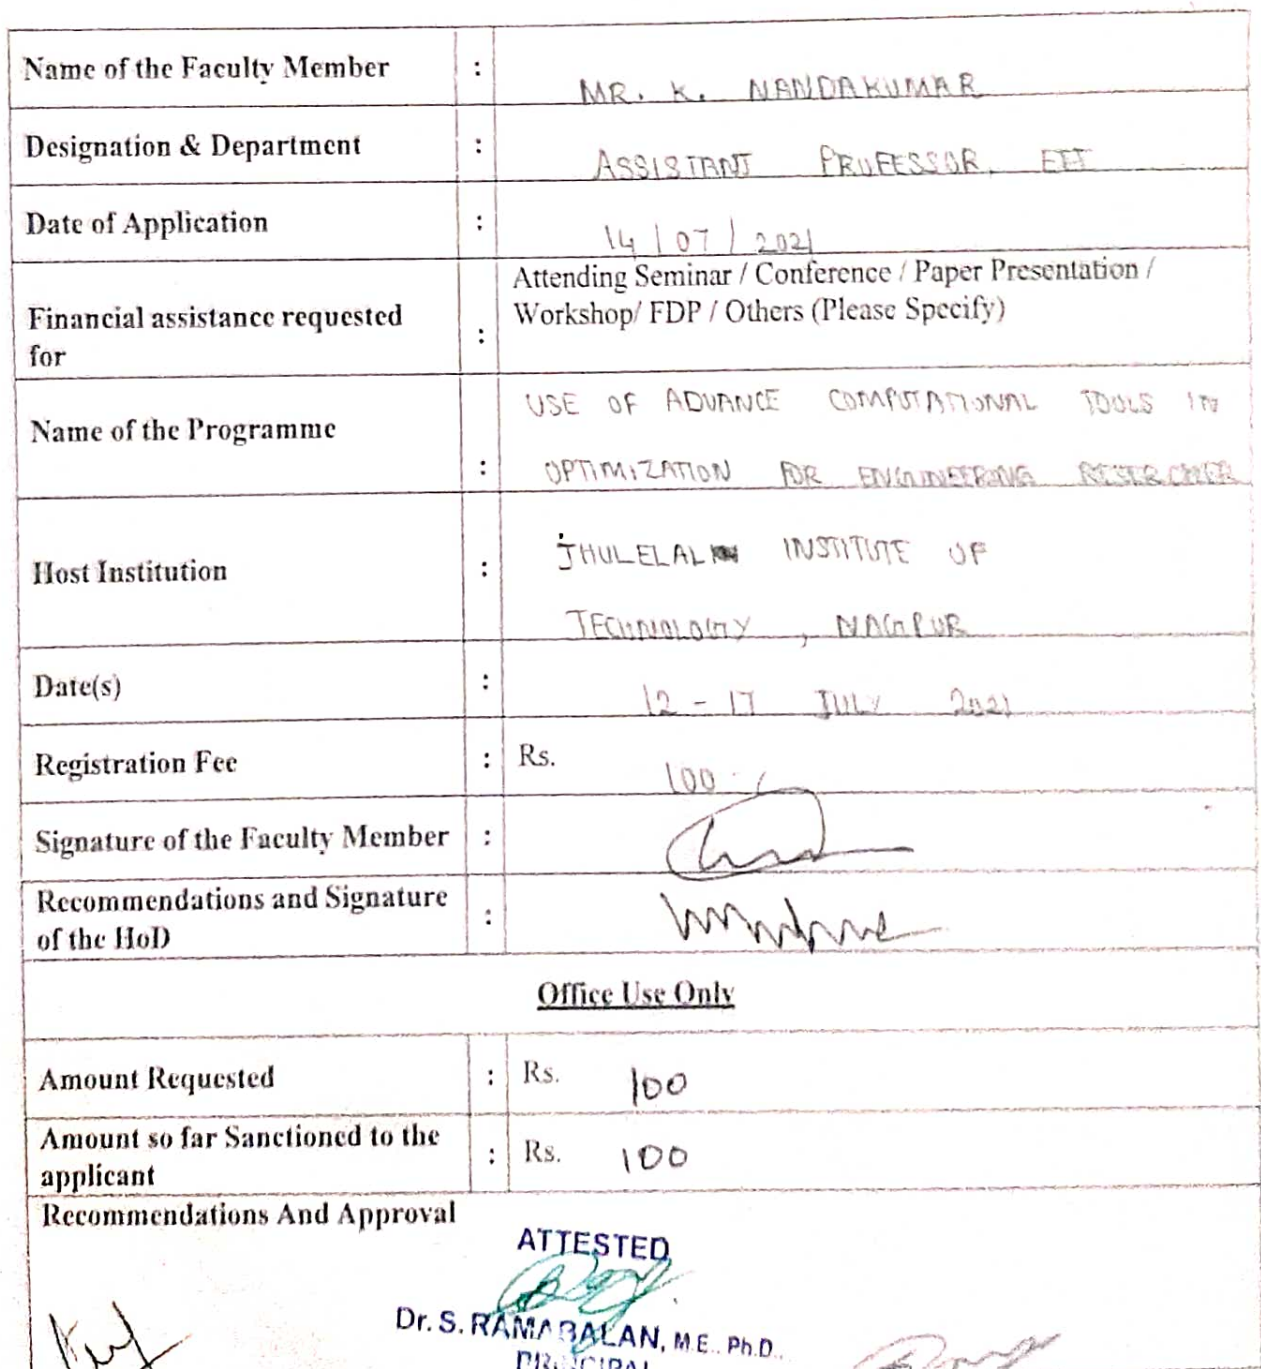 Name of the Faculty Member : MR. K. NANDAKUMAR
Designation & Department : ASSISTANT PROFESSOR, EEE
Date of Application : 14 / 07 / 2021
Attending Seminar / Conference / Paper Presentation /
Financial assistance requested : Workshop/ FDP / Others (Please Specify)
for
USE OF ADVANCE COMPUTATIONAL TOOLS IN
Name of the Programme
: OPTIMIZATION FOR ENGINEERING
Host Institution : JHULELAL INSTITUTE OF
TECHNOLOGY , NAGPUR
Date(s) : 12 - 17 JULY 2021
Registration Fee : Rs. 100
Signature of the Faculty Member :
Recommendations and Signature
of the HoD :
Office Use Only
Amount Requested : Rs. 100
Amount so far Sanctioned to the
applicant : Rs. 100
Recommendations And Approval
ATTESTED
Dr. S. RAMABALAN, M.E., Ph.D.,
PRINCIPAL